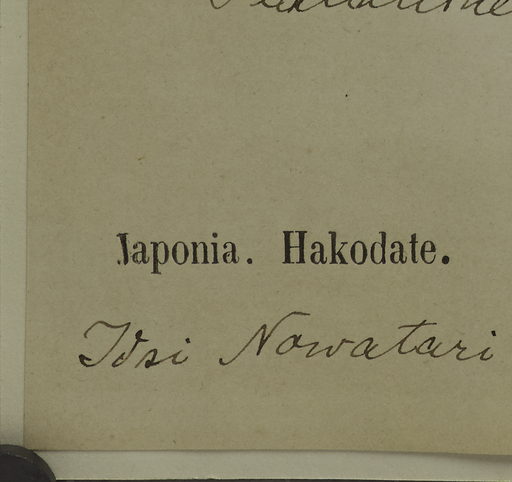 Japonia. Hakodate.
Idsi Nowatari